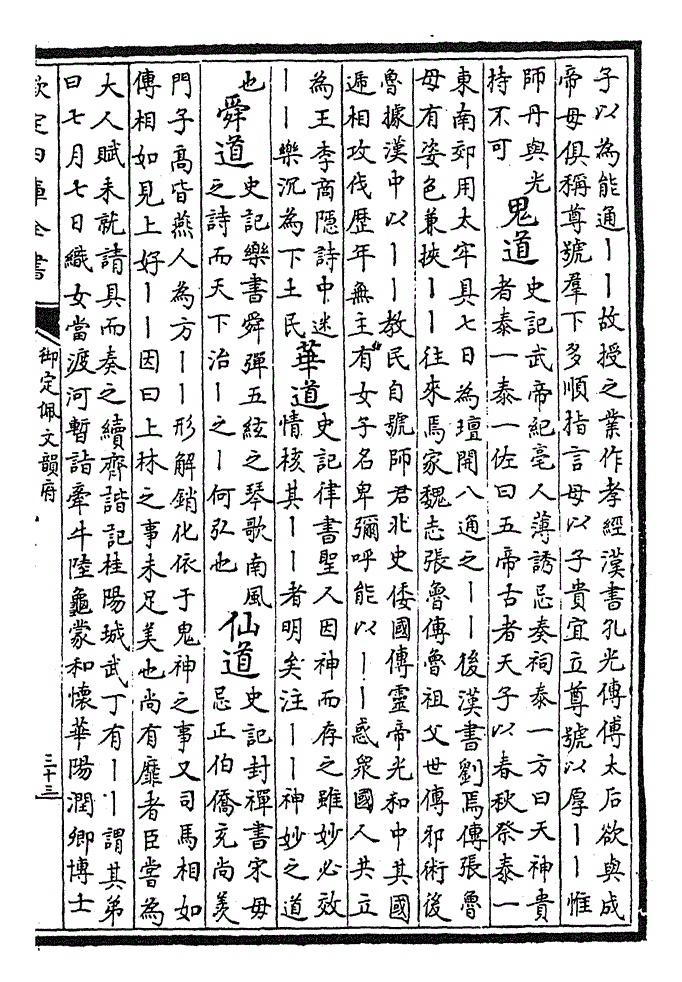 子以為能通丨丨故授之業作孝經漢書孔光傳傅太后欲與成
帝母俱稱尊號羣下多順指言母以子貴宜立尊號以厚丨丨惟
師丹與光
持不可
鬼道
史記武帝紀亳人薄誘忌奏祠泰一方曰天神貴
者泰一泰一佐曰五帝古者天子以春秋祭泰一
東南郊用太牢具七日為壇開八通之丨丨後漢書劉焉傳張魯
母有姿色兼挾丨丨往來焉家魏志張魯傳魯祖父世傳邪術後
魯據漢中以丨丨教民自號師君北史倭國傳靈帝光和中其國
遞相攻伐歴年無主有女子名卑彌呼能以丨丨惑衆國人共立
為王李商隱詩中迷
丨丨樂沉為下土民
華道
史記律書聖人因神而存之雖妙必效
情核其丨丨者明矣注丨丨神妙之道
也
舜道
史記樂書舜彈五絃之琴歌南風
之詩而天下治丨之丨何弘也
仙道
史記封禪書宋毋
忌正伯僑充尚羡
門子髙皆燕人為方丨丨形解銷化依于鬼神之事又司馬相如
傳相如見上好丨丨因曰上林之事未足美也尚有靡者臣嘗為
大人賦未就請具而奏之續齊諧記桂陽城武丁有丨丨謂其弟
曰七月七日織女當渡河暫詣牽牛陸龜蒙和懷華陽潤卿博士
欽定四庫全書
御定佩文韻府
三十三